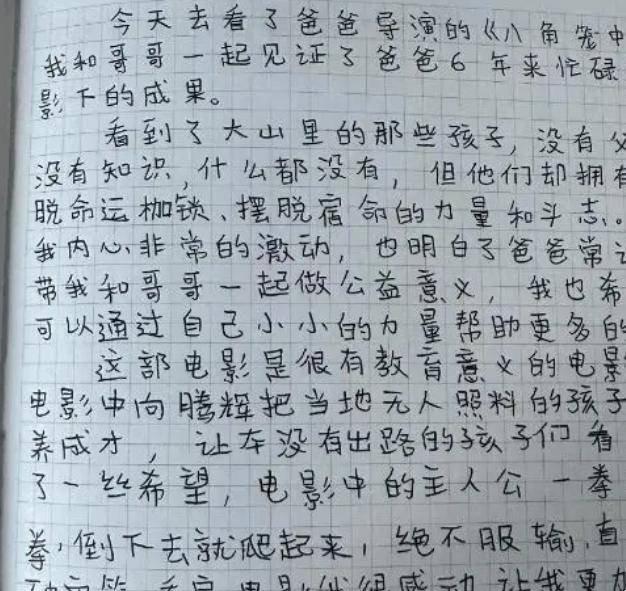 今天去看了爸爸导演的《八角笼中
我和哥哥一起见证了爸爸6年来忙碌
影下的成果。
看到了大山里的那些孩子,没有父
没有知识,什么都没有,但他们却拥有
脱命运枷锁、摆脱宿命的力量和斗志。
我内心非常的激动,也明白了爸爸常让
带我和哥哥一起做公益意义,我也希
可以通过自己小小的力量帮助更多的
这部电影是很有教育意义的电影
电影中向腾辉把当地无人照料的孩子
养成才,让本没有出路的孩子们看
了一丝希望,电影中的主人公一拳
拳,倒下去就爬起来,绝不服输,直
电影 很感动 让我更加